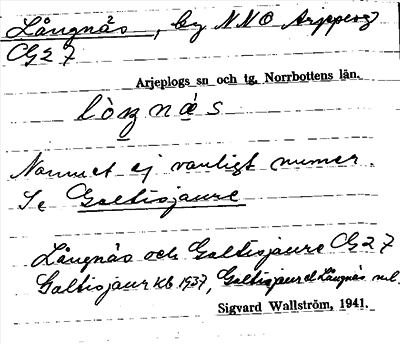 Långnäs, by NNO Arjeplog
Cg 27
Arjeplogs sn och tg. Norrbottens län.
lòŋnä́s
Namnet ej vanligt numer.
Se Galtisjaure
Långnäs och Galtisjaure Cg 27
Galtisjaur Kb 1937, Galtisjaur el Långnäs
Sigvard Wallström, 1941.